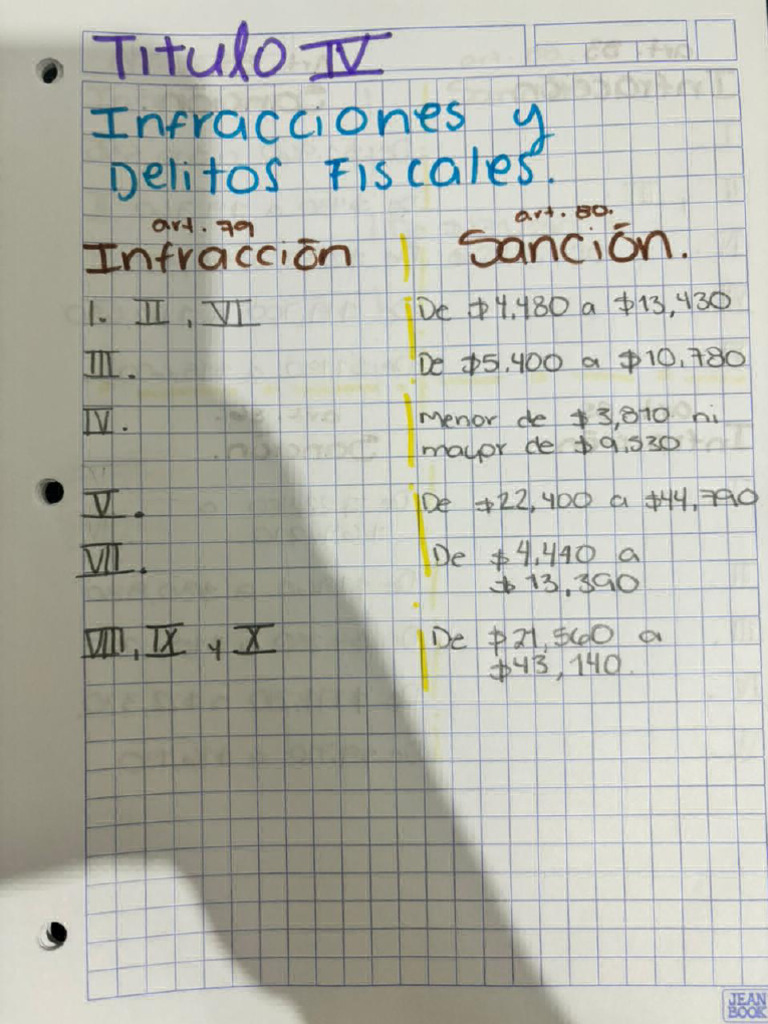 Titulo IV
Infracciones y
Delitos Fiscales.
art. 79 art. 80.
Infracción Sanción.
1. II, VI De $4,480 a $13,430
III. De $5.400 a $10,780
IV. Menor de $3,810 ni
mayor de $9,530
V. De $22,400 a $44,790
VII. De $4,440 a
$13,390
VIII, IX y X De $21,560 a
$43,140.
JEAN
BOOK